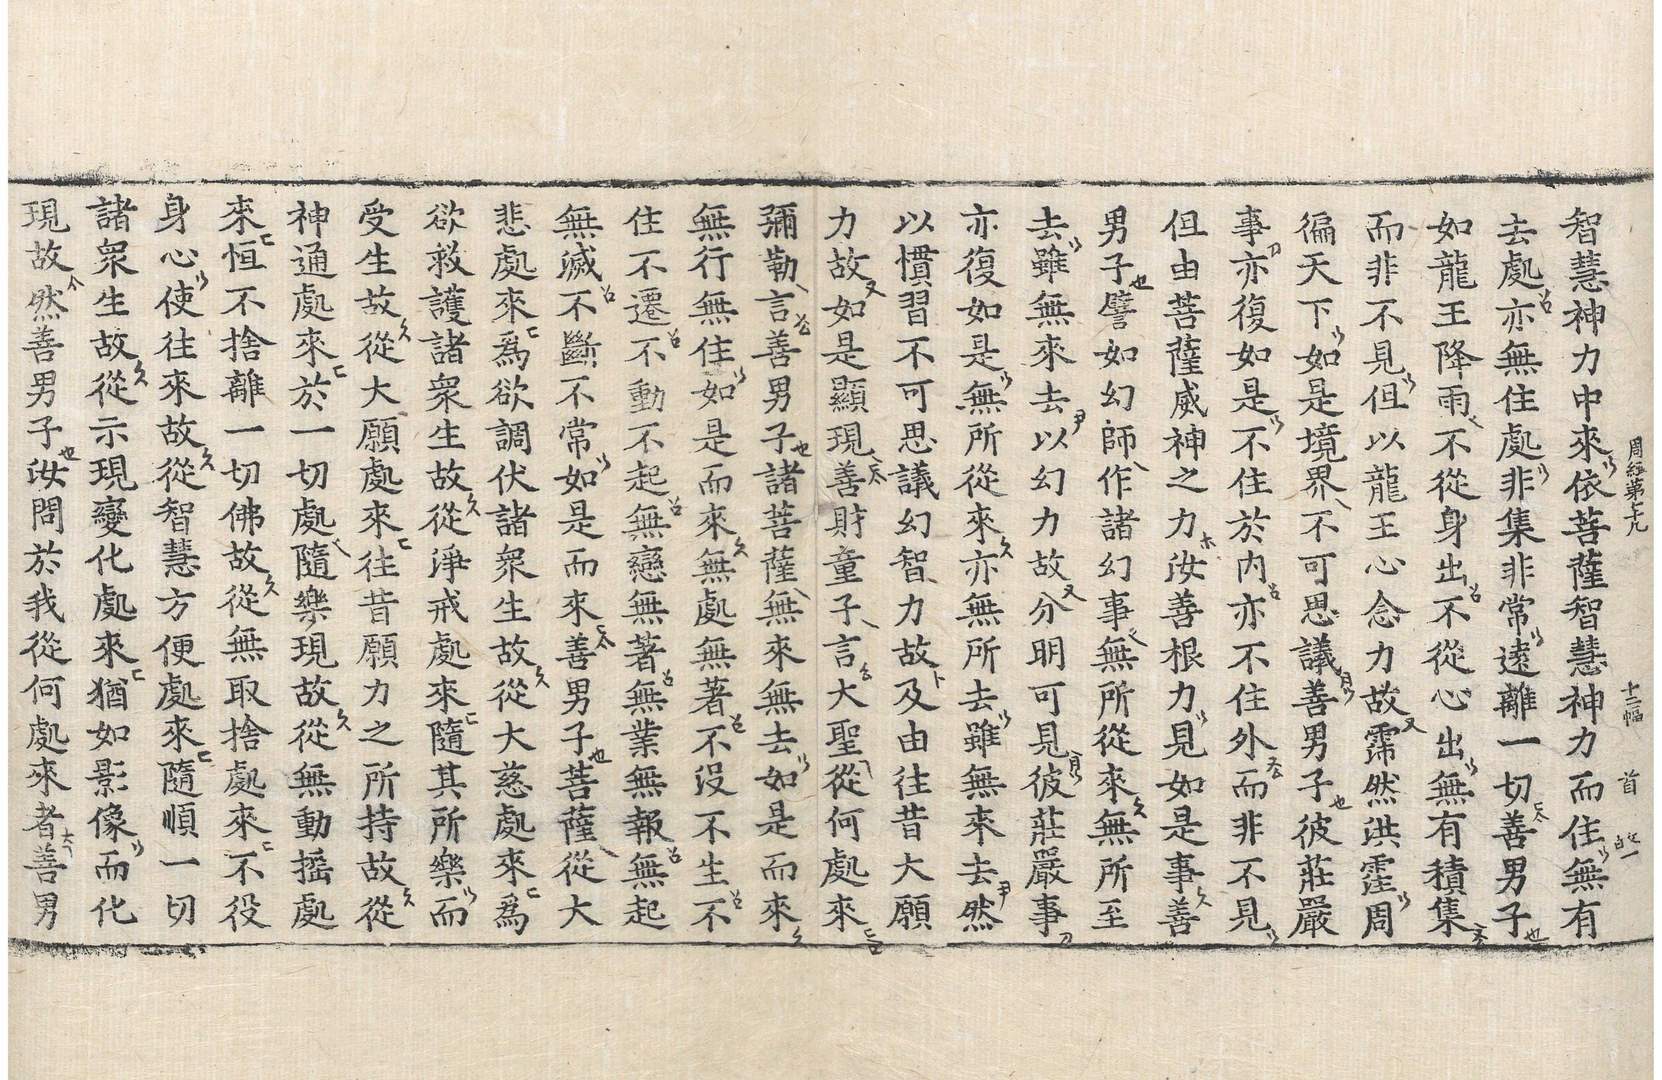 周經第七九　十二幅　首
智慧神力中來依菩薩智慧神力而住無有
去處亦無住處非集非常遠離一切善男子
如龍王降雨不從身出不從心出無有積集
而非不見但以龍王心念力故霈然洪霔周
徧天下如是境界不可思議善男子彼莊嚴
事亦復如是不住於內亦不住外而非不見
但由菩薩威神之力汝善根力見如是事善
男子譬如幻師作諸幻事無所從來無所至
去雖無來去以幻力故分明可見彼莊嚴事
亦復如是無所從來亦無所去雖無來去然
以慣習不可思議幻智力故及由往昔大願
力故如是顯現善財童子言大聖從何處來
彌勒言善男子諸菩薩無來無去如是而來
無行無住如是而來無處無著不沒不生不
住不遷不動不起無戀無著無業無報無起
無滅不斷不常如是而來善男子菩薩從大
悲處來爲欲調伏諸衆生故從大慈處來爲
欲救護諸衆生故從淨戒處來隨其所樂而
受生故從大願處來往昔願力之所持故從
神通處來於一切處隨樂現故從無動搖處
來恒不捨離一切佛故從無取捨處來不役
身心使往來故從智慧方便處來隨順一切
諸衆生故從示現變化處來猶如影像而化
現故然善男子汝問於我從何處來者善男